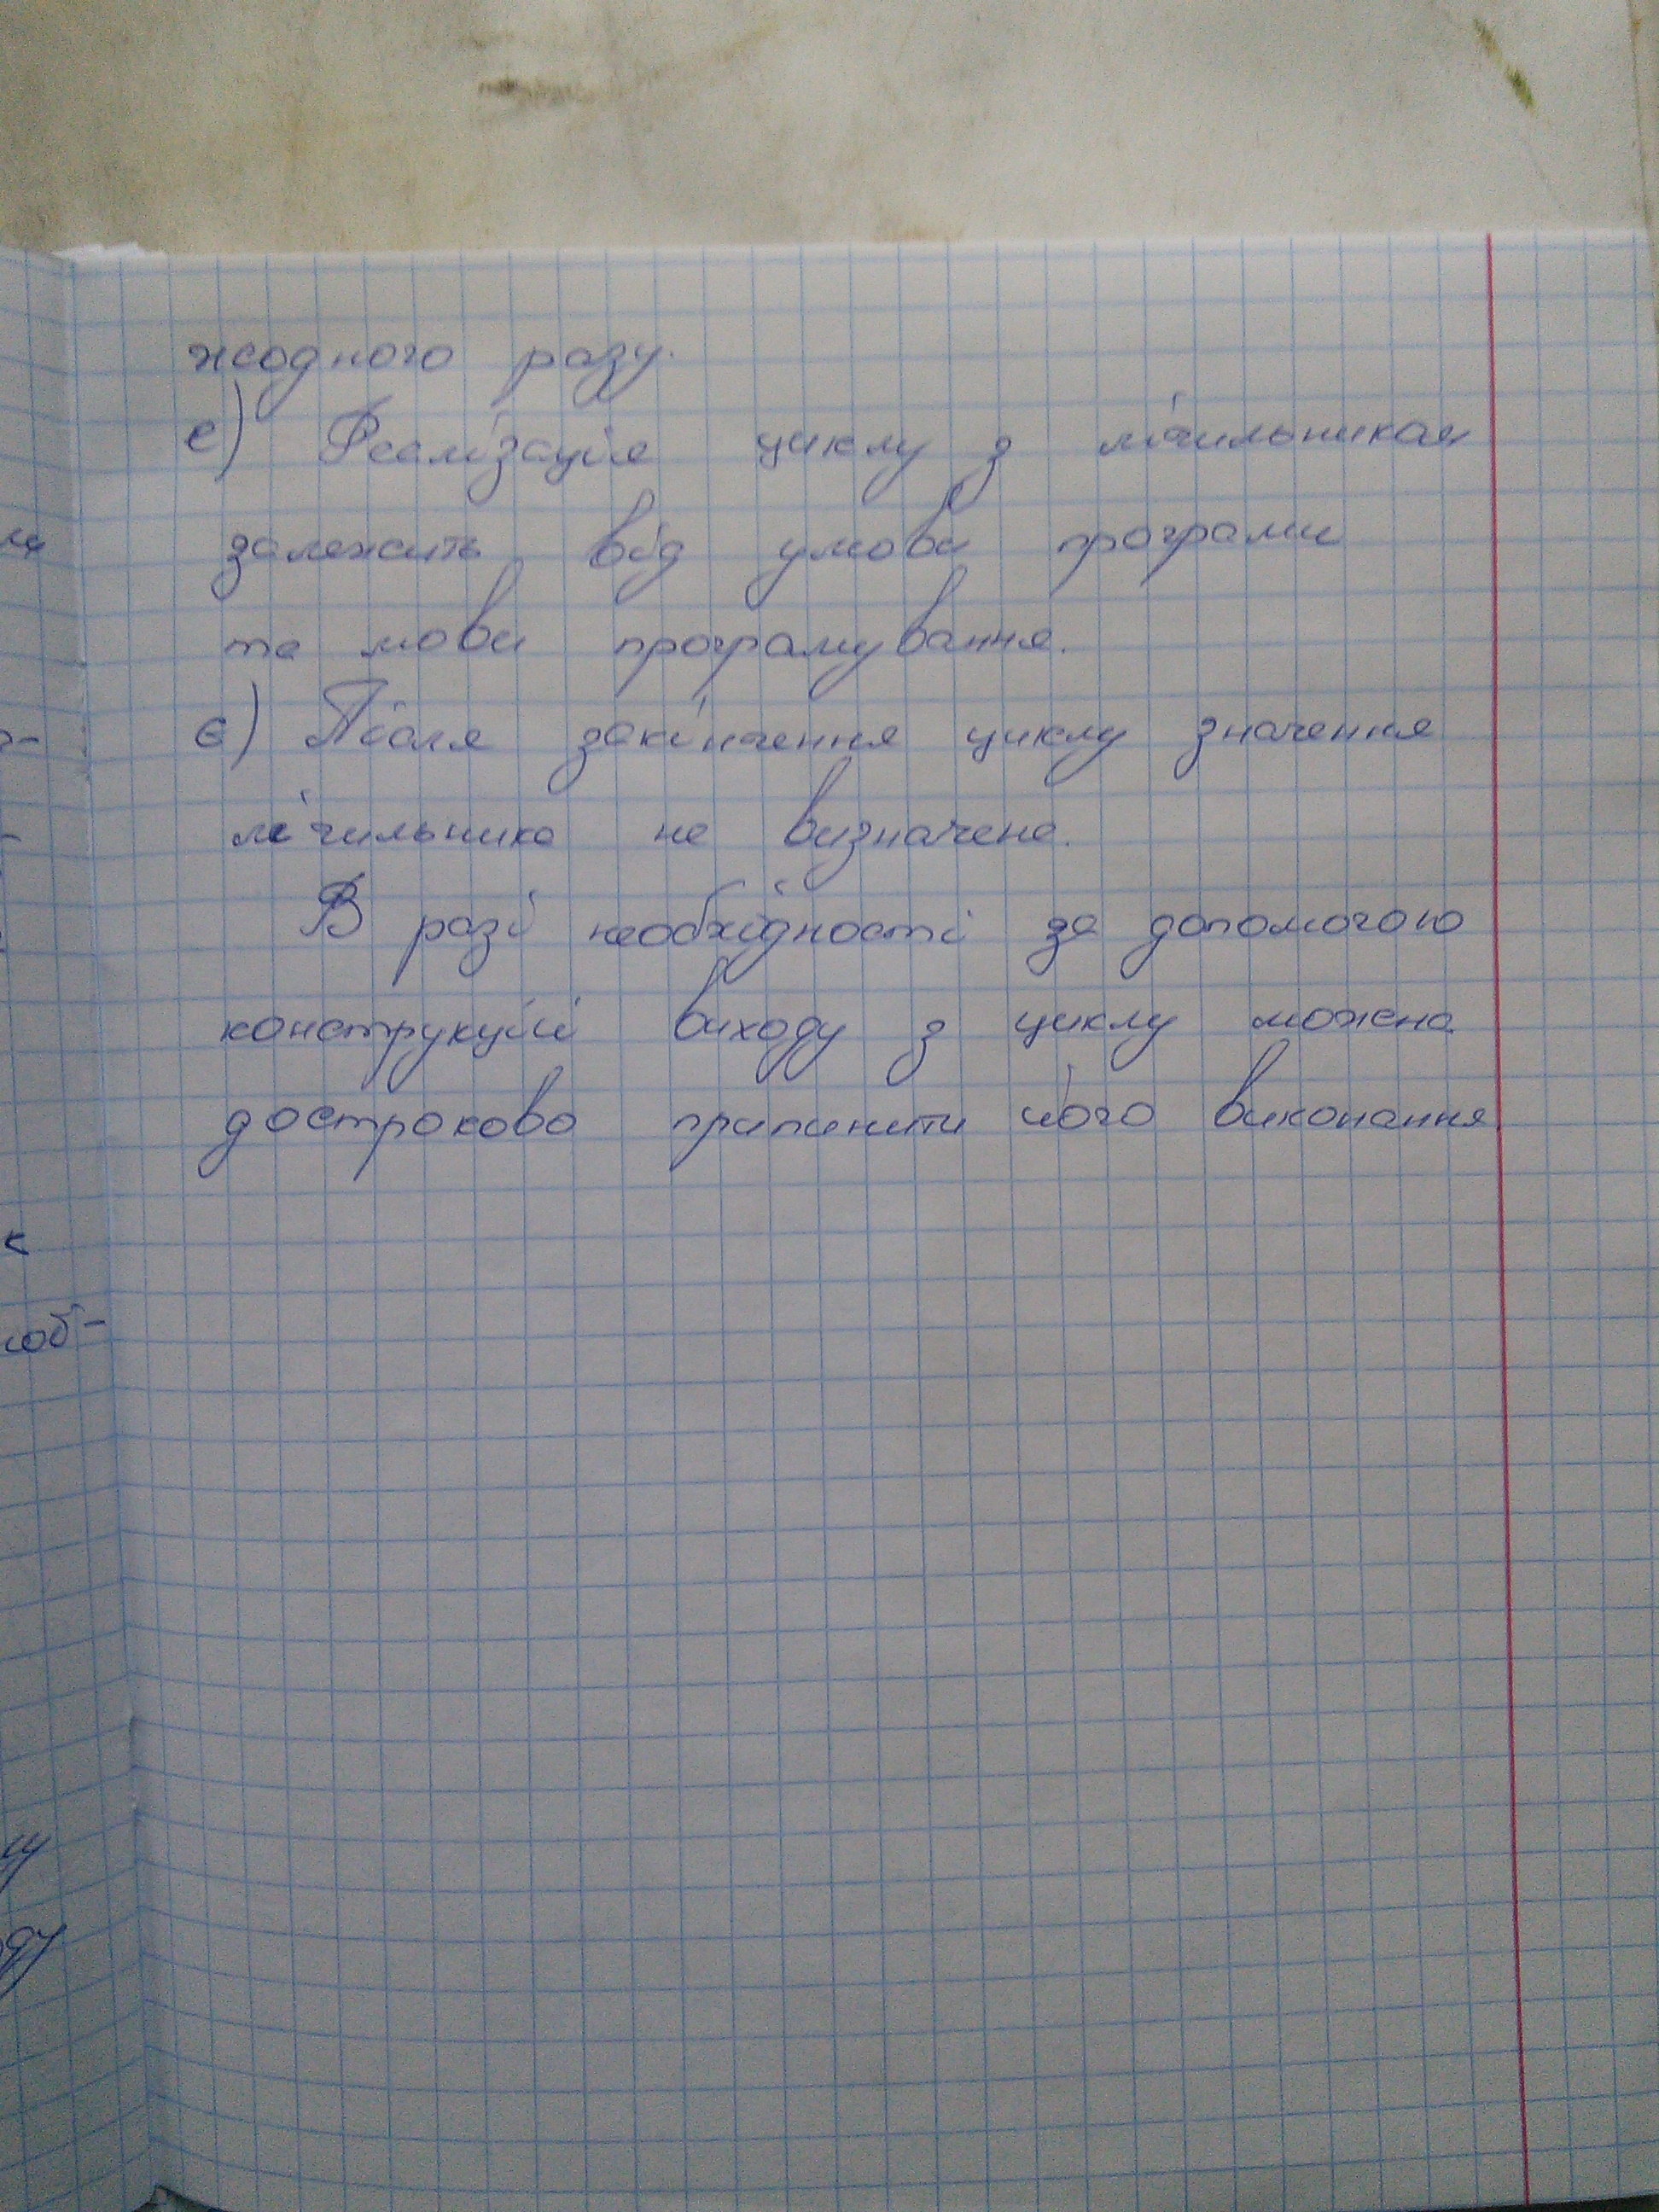 жодного разу.
е) Реалізація циклу з лічильником
залежить від умови програми
та мови програмування.
є) Після закінчення циклу значення
лічильника не визначене.
В разі необхідності за допомогою
конструкції виходу з циклу можна
достроково припинити його виконання
соб-